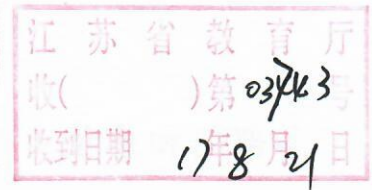 江苏省教育厅
收( )第03443号
收到日期 17年8月21日